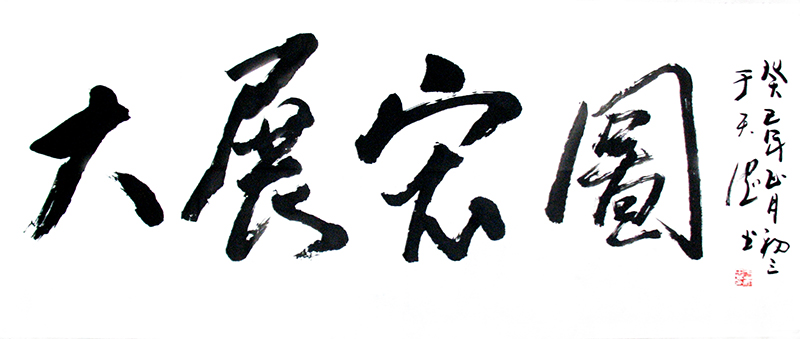 大展宏圖
癸巳年正月初三
于天 书